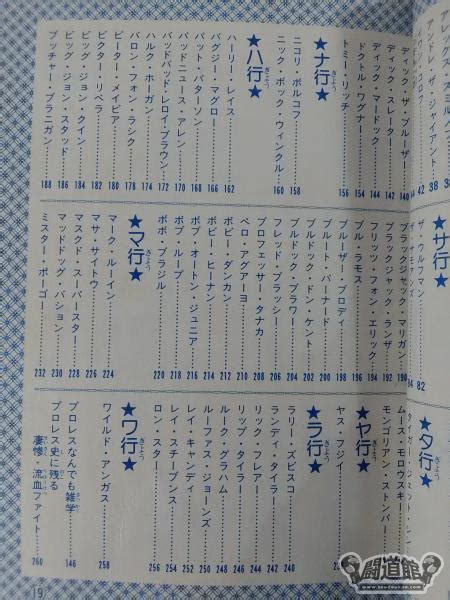 ディック・ザ・ブルーザー……140
ディック・スレーター……142
ディック・マードック……144
ドクトル・ワグナー……154
トミー・リッチ……156
★ナ行★
ニコリ・ボルコフ……158
ニック・ボックウィンクル……160
★ハ行★
ハーリー・レイス……162
バグジー・マグロー……166
パット・パターソン……168
バッドニュース・アレン……170
バッドバッド・レロイ・ブラウン……172
ハルク・ホーガン……174
バロン・フォン・ラシク……178
ピーター・メイビア……180
ビクター・リベラ……182
ビッグ・ジョン・クイン……184
ビッグ・ジョン・スタッド……186
ブッチャー・ブラニガン……188
★サ行★
ザ・ウルフマン
ザ・サモアンズ
82
ブラックジャック・マリガン……190
ブラックジャック・ランザ……192
フリッツ・フォン・エリック……194
ブル・ラモス……196
ブルーザー・ブロディ……198
ブルート・バーナード……200
ブルドッグ・ドン・ケント……202
ブルドッグ・ブラワー……204
フレッド・ブラッシー……206
プロフェッサ・タナカ……208
ペロ・アグアーヨ……210
ボビー・ダンカン……212
ボビー・ヒーナン……214
ボブ・オートン・ジュニア……216
ボブ・ループ……218
ボボ・ブラジル……220
★マ行★
マーク・ルーイン……224
マサ・サイトウ……226
マスクド・スーパースター……228
マッドドッグ・バション……230
ミスター・ポーゴ……232
★タ行★
ムース・モロウスキー
モンゴリアン・ストンパー
★ヤ行★
ヤス・フジイ
★ラ行★
ラリー・ズビスコ……240
ランディ・タイラー……242
リック・フレアー……244
リップ・タイラー……246
ルーク・グラハム……248
ルーファス・ジョーンズ……250
レイ・キャンディ……252
レイ・スチーブンス……254
ロン・スター……256
★ワ行★
ワイルド・アンガス……258
プロレスなんでも雑学……146
プロレス史に残る
凄惨、流血ファイト……260
19
闘道館